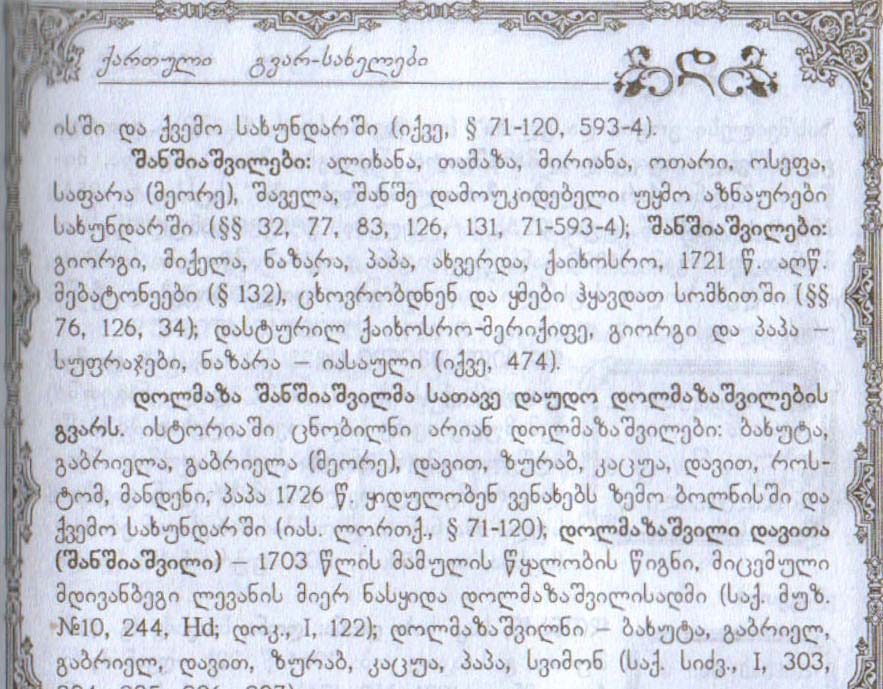 ქართული გვარ-სახელები
დ
ისში და ქვემო სახუნდარში (იქვე, § 71-120, 593-4).
შანშიაშვილები: ალიხანა, თამაზა, მირიანა, ოთარი, ოსეფა,
საფარა (მეორე), შაველა, შანშე დამოუკიდებელი უყმო აზნაურები
სახუნდარში (§§ 32, 77, 83, 126, 131, 71-593-4); შანშიაშვილები:
გიორგი, მიქელა, ნაზარა, პაპა, ახვერდა, ქაიხოსრო, 1721 წ. აღწ.
მებატონეები (§ 132), ცხოვრობდნენ და ყმები ჰყავდათ სომხითში (§§
76, 126, 34); დასტურილ ქაიხოსრო-მერიქიფე, გიორგი და პაპა –
სუფრაჯები, ნაზარა – იასაული (იქვე, 474).
დოლმაზა შანშიაშვილმა სათავე დაუდო დოლმაზაშვილების
გვარს. ისტორიაში ცნობილნი არიან დოლმაზაშვილები: ბახუტა,
გაბრიელა, გაბრიელა (მეორე), დავით, ზურაბ, კაცუა, დავით, როს-
ტომ, მანდენი, პაპა 1726 წ. ყიდულობენ ვენახებს ზემო ბოლნისში და
ქვემო სახუნდარში (იას. ლორთქ., § 71-120); დოლმაზაშვილი დავითა
(შანშიაშვილი) – 1703 წლის მამულის წყალობის წიგნი, მიცემული
მდივანბეგი ლევანის მიერ ნასყიდა დოლმაზაშვილისადმი (საქ. მუზ.
№10, 244, Hd; დოკ., I, 122); დოლმაზაშვილნი – ბახუტა, გაბრიელ,
გაბრიელ, დავით, ზურაბ, კაცუა, პაპა, სვიმონ (საქ. სიძვ., I, 303,